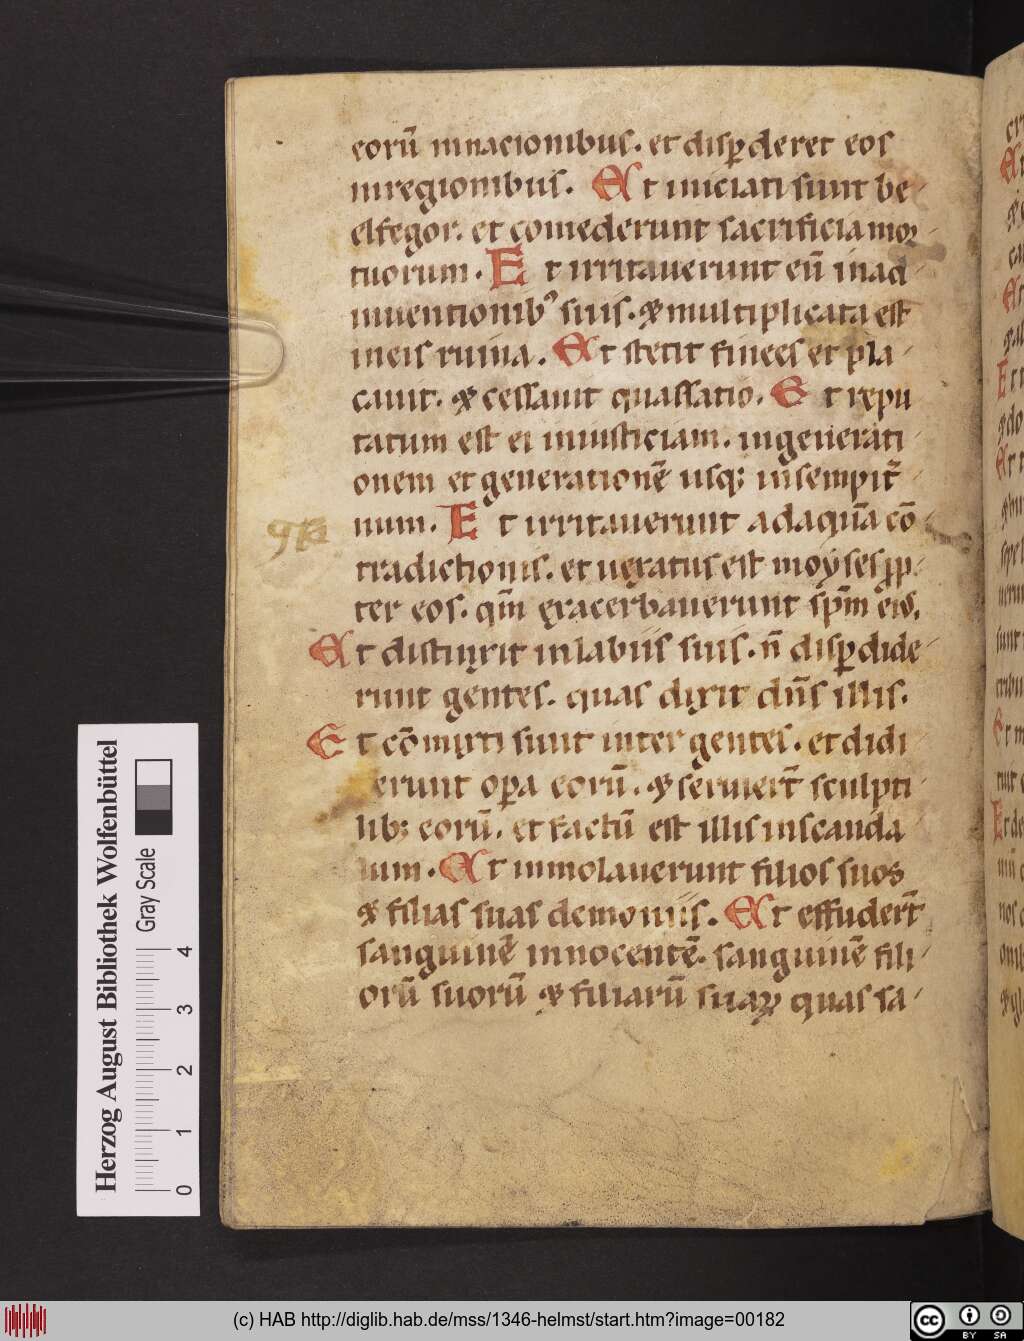 eorū innacionibus. et disꝑderet eos
inregionibus. Et iniciati sunt be-
elfegor. et comederunt sacrificia mor-
tuorum. Et irritauerunt eū inad
inuentionibꝰ suis. ⁊ multiplicata est
ineis ruina. Et stetit finees et pla-
cauit. ⁊ cessauit quassatio. Et repu
tatum est ei iniusticiam. ingenerati-
onem et generationē usqꝫ insempit̄-
num. Et irritauerunt adaquā cō-
gła
tradictionis. et uexatus est moyses ꝓp-
ter eos. qm̄ exacerbauerunt sp̄m eiꝰ.
Et distinxit inlabiis suis. n̄ disꝑdide-
runt gentes. quas dixit dn̄s illis.
Et cōmixti sunt inter gentes. et didi-
cerunt oꝑa eorū. ⁊ seruiert̄ sculpti-
libꝫ eorū. et factū est illis inscanda-
lum. Et immolauerunt filios suos
⁊ filias suas demoniis. Et effudert̄
sanguinē innocentē. sanguinē fili-
orū suorū ⁊ filiarū suaꝝ quas sa-
Herzog August Bibliothek Wolfenbüttel
Gray Scale
0 1 2 3 4
(c) HAB http://diglib.hab.de/mss/1346-helmst/start.htm?image=00182
cc BY SA